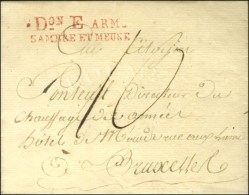 Don E ARM
SAMBRE ET MEUSE
Au Citoyen
Directeur des
Chauffage des armées
hôtel de rue aux laines
Bruxelles